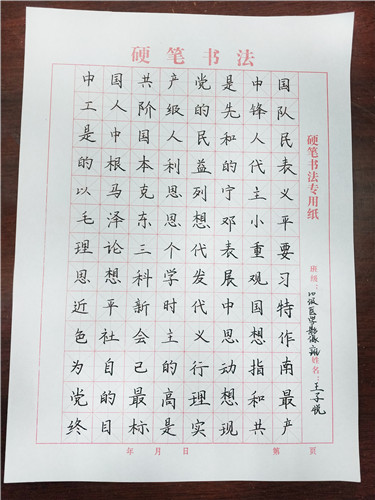 硬笔书法
中国共产党是中国
工人阶级的先锋队
是中国人民和人民
的根本利益的代表
以马克思列宁主义
毛泽东思想邓小平
理论三个代表重要
思想科学发展观习
近平新时代中国特
色社会主义思想作
为自己的行动指南
党的最高理想和最
终目标是实现共产
硬笔书法专用纸
班级：级医学影像 姓名：王子悦
年 月 日 第 页